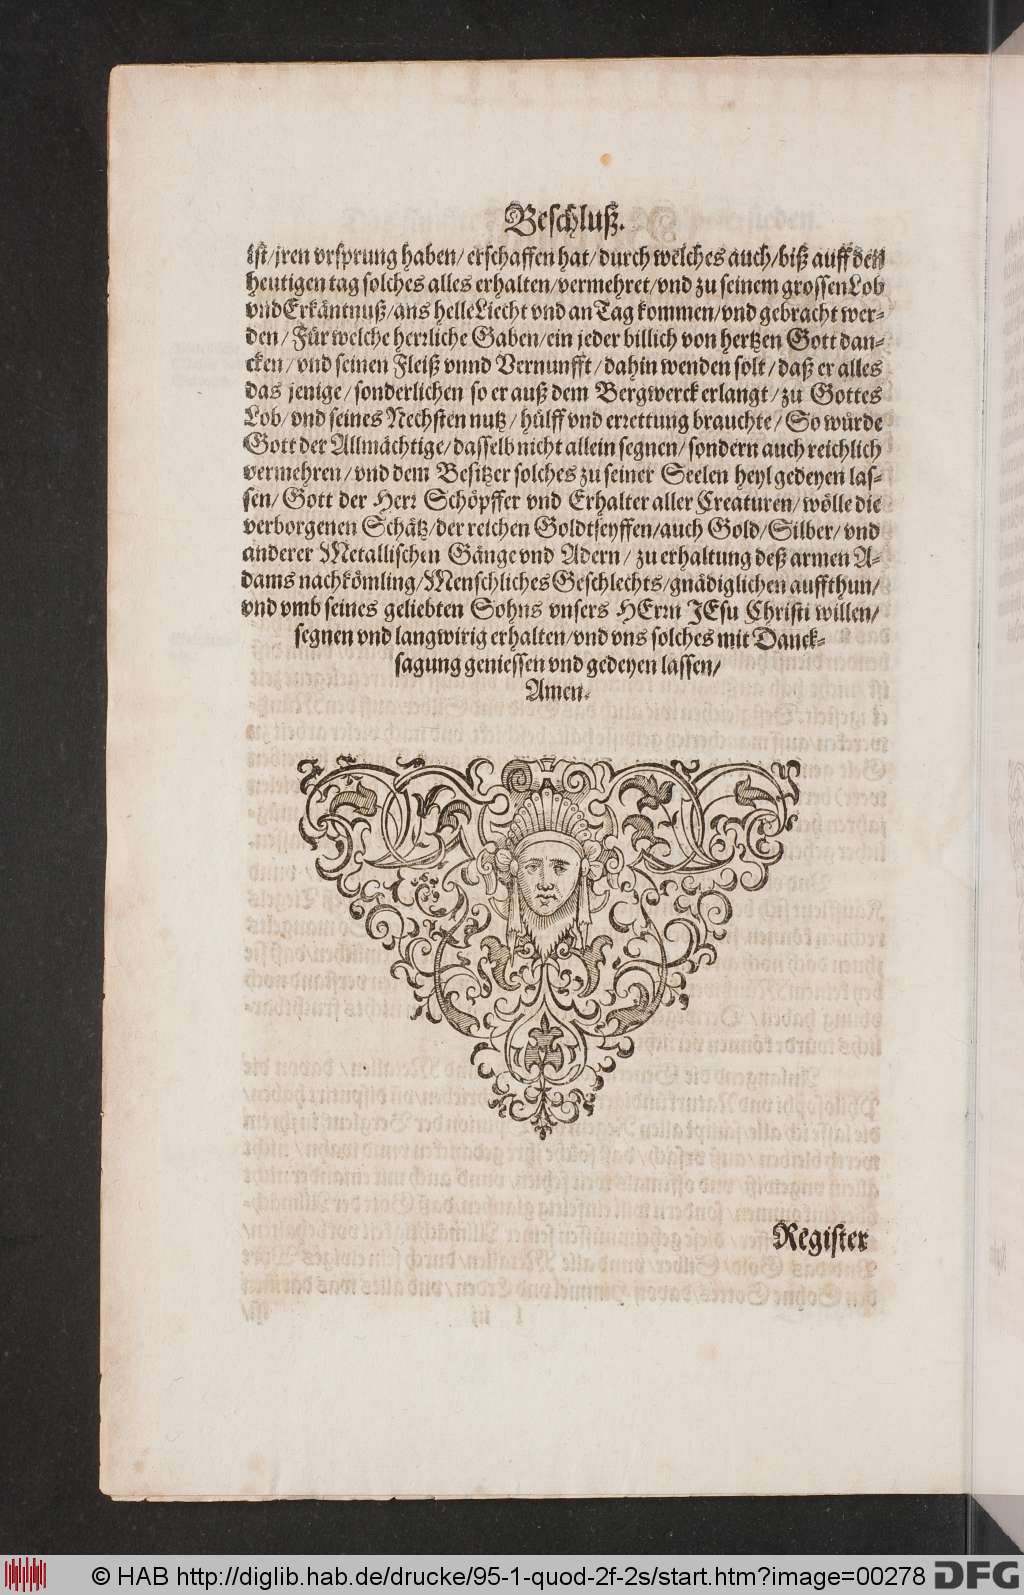 Beschluß.
ist/jren vrsprung haben/ erschaffen hat/durch welches auch/biß auff den
heutigen tag solches alles erhalten/vermehret/vnd zu seinem grossen Lob
vnd Erkäntnuß/ans helle Liecht vnd an Tag kommen/vnd gebracht wer-
den/Für welche herꝛliche Gaben/ein jeder billich von hertzen Gott dan-
cken/vnd seinen Fleiß vnnd Vernunfft/dahin wenden solt/daß er alles
das jenige/sonderlichen so er auß dem Bergwerck erlangt/zu Gottes
Lob/vnd seines Nechsten nutz/hülff vnd erꝛettung brauchte/So würde
Gott der Allmächtige/dasselb nicht allein segnen/sondern auch reichlich
vermehren/vnd dem Besitzer solches zu seiner Seelen heyl gedeyen las-
sen/Gott der Herꝛ Schöpffer vnd Erhalter aller Creaturen/wölle die
verborgenen Schätz/der reichen Goldtseyffen/auch Gold/Silber/vnd
anderer Metallischen Gänge vnd Adern/zu erhaltung deß armen A-
dams nachkömling/Menschliches Geschlechts/gnädiglichen auffthun/
vnd vmb seines geliebten Sohns vnsers HErꝛn JEsu Christi willen/
segnen vnd langwirig erhalten/vnd vns solches mit Danck-
sagung geniessen vnd gedeyen lassen/
Amen.
Register
© HAB http://diglib.hab.de/drucke/95-1-quod-2f-2s/start.htm?image=00278
DFG